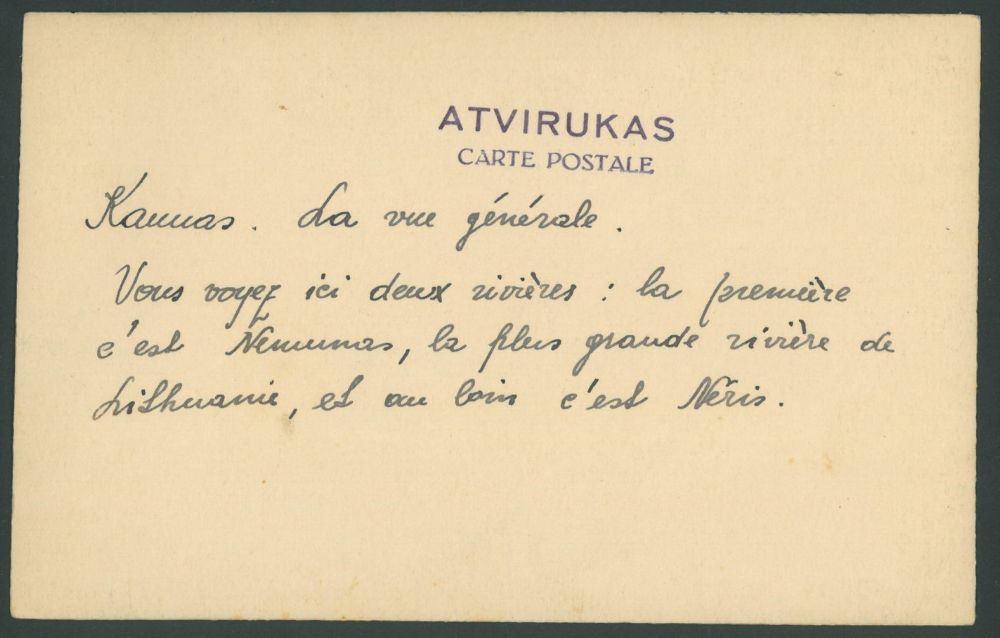 ATVIRUKAS
CARTE POSTALE
Kaunas. La vue générale.
Vous voyez ici deux rivières : la première
c'est Nemunas, la plus grande rivière de
Lithuanie, et au loin c'est Néris.